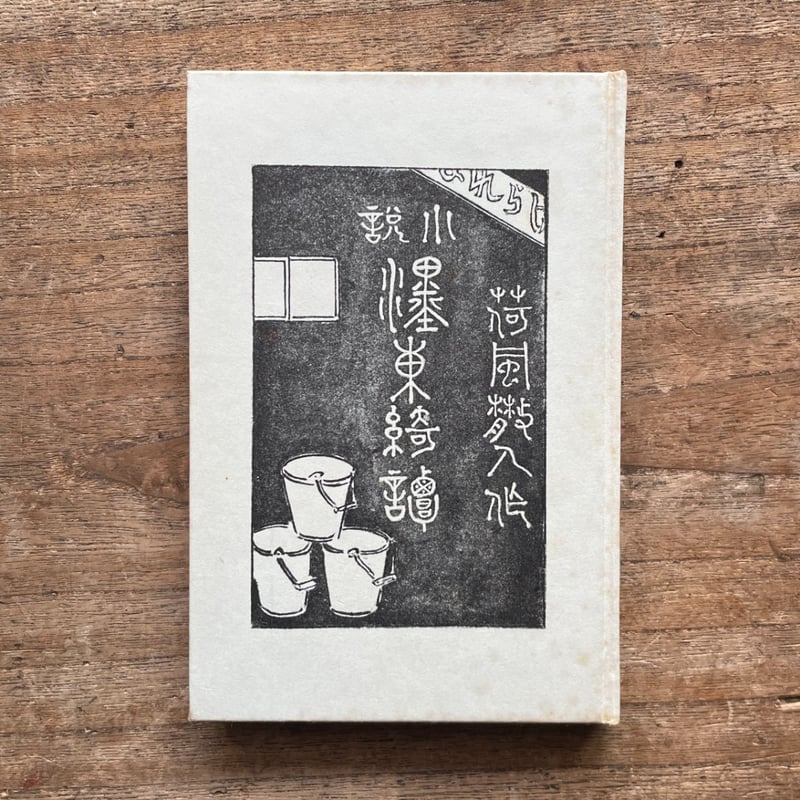 けられま
荷風散人作
小説
濹東綺譚